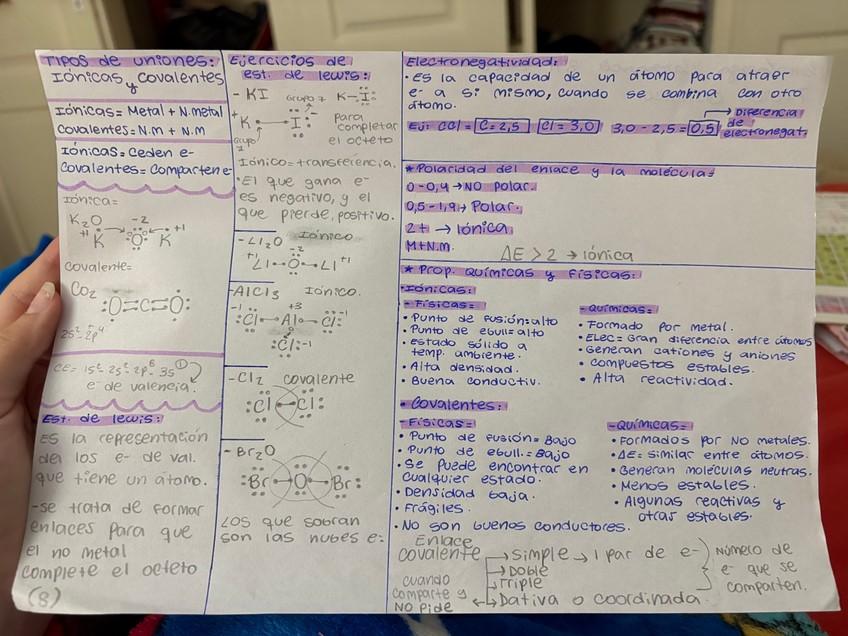 Tipos de uniones:
Iónicas y covalentes
Iónicas = Metal + N.metal
Covalentes = N.m + N.m
Iónicas = Ceden e-
Covalentes = Comparten e-
Iónica =
K2O
+1 -2 +1
K O K
Covalente =
CO2
:O=C=O:
2s² - 2p⁴
CE = 1s² - 2s² - 2p⁶ - 3s①
e- de valencia.
Est. de lewis:
Es la representación
del los e- de val.
que tiene un átomo.
-se trata de formar
enlaces para que
el no metal
complete el octeto
(8)
Ejercicios de
est. de lewis:
- KI
Grupo 7 K-I:
+ -
K I:
Grupo 1
para
completar
el octeto
Iónico = transferencia.
• El que gana e-
es negativo, y el
que pierde, positivo.
- LI2O Iónico
+1 -2 +1
LI - O - LI
- AlCl3 Iónico.
-1 +3 -1
:Cl - Al - Cl:
:Cl: -1
- Cl2 covalente
:Cl Cl:
- Br2O
:Br O Br:
Los que sobran
son las nubes e-
Electronegatividad:
• Es la capacidad de un átomo para atraer
e- a si mismo, cuando se combina con otro
átomo.
Ej: CCl = C = 2,5 Cl = 3,0 3,0 - 2,5 = 0,5 → Diferencia
de
electronegat.
* Polaridad del enlace y la molécula:
0 - 0,4 → NO Polar.
0,5 - 1,9 → Polar.
2+ → Iónica.
M+N.m.
ΔE > 2 → iónica
* Prop. Químicas y Físicas:
• Iónicas:
- Físicas =
• Punto de fusión = alto
• Punto de ebull = alto
• Estado sólido a
temp. ambiente.
• Alta densidad.
• Buena conductiv.
- Químicas =
• Formado por metal.
• ELEC = Gran diferencia entre átomos
• Generan cationes y aniones
• Compuestos estables.
• Alta reactividad.
• Covalentes:
- Físicas =
• Punto de fusión = Bajo
• Punto de ebull. = Bajo
• Se puede encontrar en
cualquier estado.
• Densidad baja.
• Frágiles.
• No son buenos conductores.
- Químicas =
• Formados por No metales.
• ΔE = similar entre átomos.
• Generan moléculas neutras.
• Menos estables.
• Algunas reactivas y
otras estables.
Enlace
covalente → Simple → 1 par de e-
→ Doble
→ Triple
→ Dativa o coordinada.
cuando
comparte y
NO pide
Número de
e- que se
comparten.